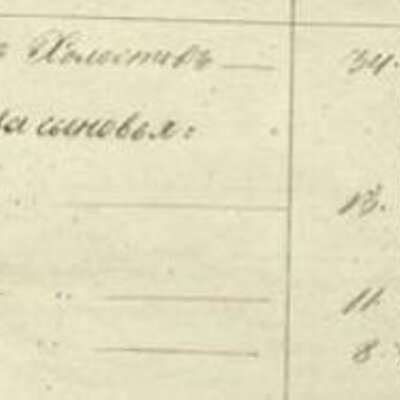 ъ Холостовъ — 34.
сыновья:
" — 13.
" — 11.
" — 8.